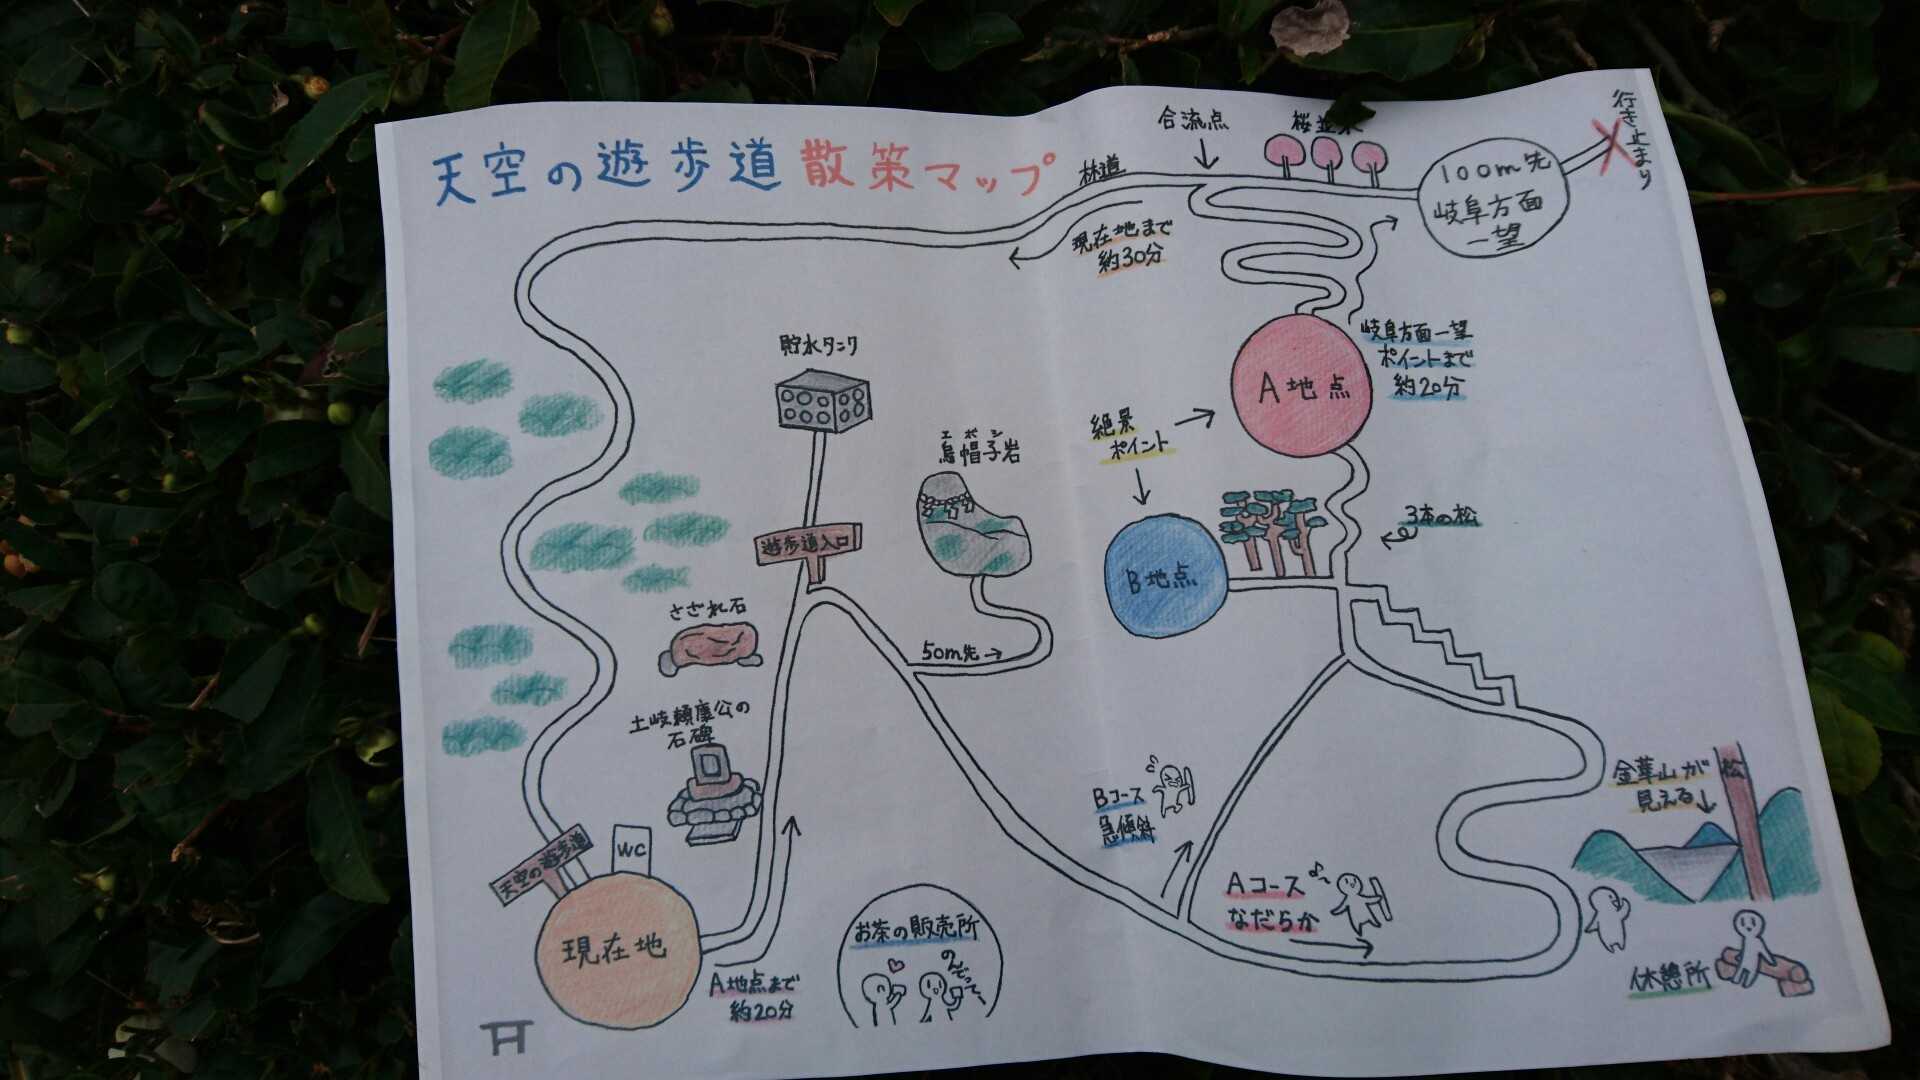 天空の遊歩道散策マップ
合流点
桜並木
行き止まり
林道
100m先
岐阜方面
一望
現在地まで
約30分
岐阜方面一望
ポイントまで
約20分
A地点
貯水タンク
絶景
ポイント
エボシ
烏帽子岩
3本の松
遊歩道入口
B地点
さざれ石
50m先
土岐頼康公の
石碑
金華山が
見える
松
Bコース
急傾斜
天空の遊歩道
WC
Aコース
なだらか
お茶の販売所
のんでってー
現在地
A地点まで
約20分
休憩所